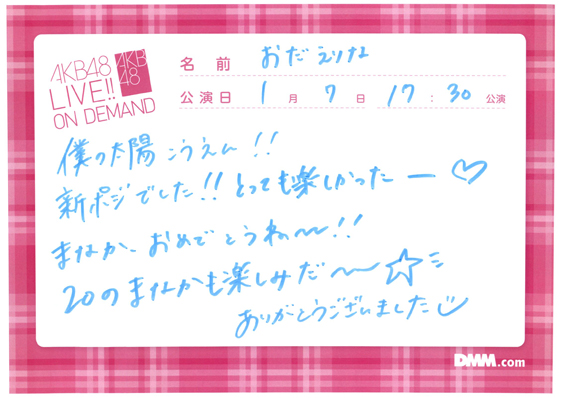 AKB48
LIVE!!
ON DEMAND
AKB
48
名前 おだえりな
公演日 1月7日 17:30公演
僕の太陽こうえん!!
新ポジでした!!とっても楽しかったー♡
まなか、おめでとうね〜〜!!
20のまなかも楽しみだ〜☆
ありがとうございました
DMM.com